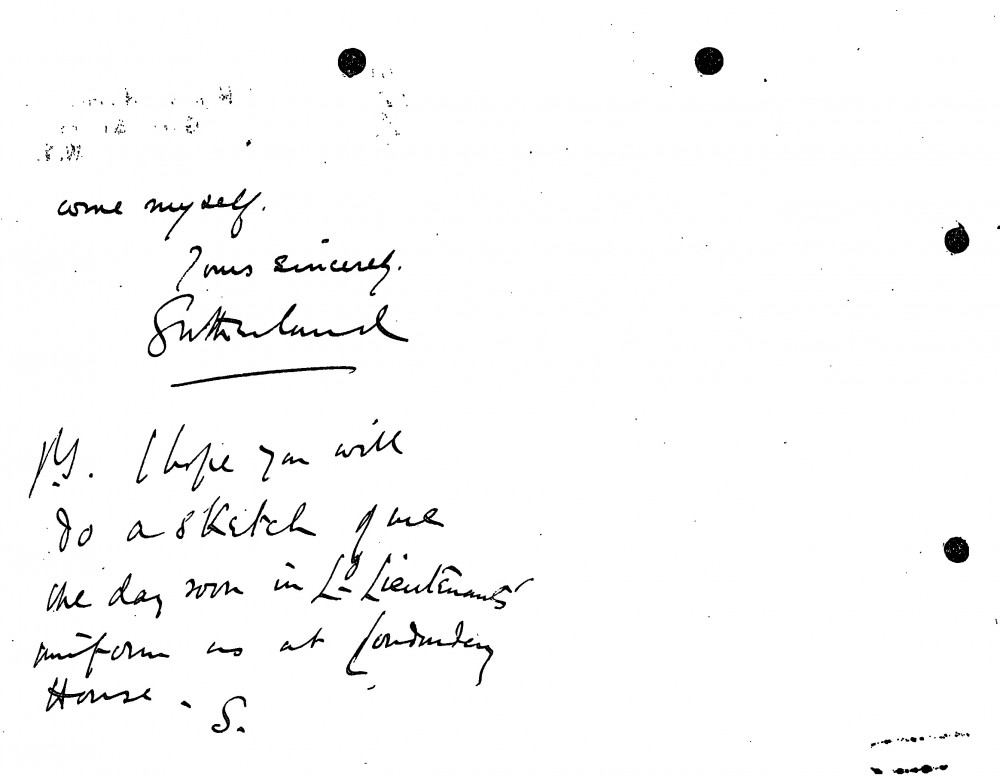 come myself.
Yours sincerely.
Sutherland
P.S. I hope you will
do a sketch of me
one day soon in Ld Lieutenants'
uniform as at Londonderry
House.
S.